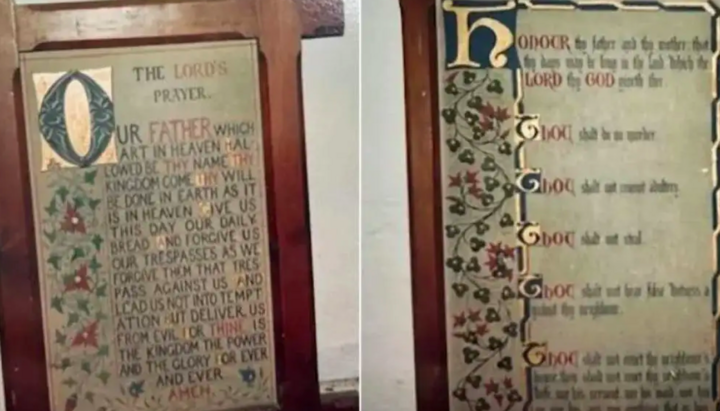 THE LORD'S
PRAYER.
OUR FATHER WHICH
ART IN HEAVEN HAL-
LOWED BE THY NAME THY
KINGDOM COME THY WILL
BE DONE IN EARTH AS IT
IS IN HEAVEN GIVE US
THIS DAY OUR DAILY
BREAD AND FORGIVE US
OUR TRESPASSES AS WE
FORGIVE THEM THAT TRES
PASS AGAINST US AND
LEAD US NOT INTO TEMPT
ATION BUT DELIVER US
FROM EVIL FOR THINE IS
THE KINGDOM THE POWER
AND THE GLORY FOR EVER
AND EVER
AMEN.
HONOUR thy father and thy mother: that
thy days may be long in the land which the
LORD thy GOD giveth thee
Thou shalt do no murder.
Thou shalt not commit adultery.
Thou shalt not steal.
Thou shalt not bear false witness a
gainst thy neighbour.
Thou shalt not covet thy neighbour's
house, thou shalt not covet thy neighbour's
wife, nor his servant, nor his maid, nor his